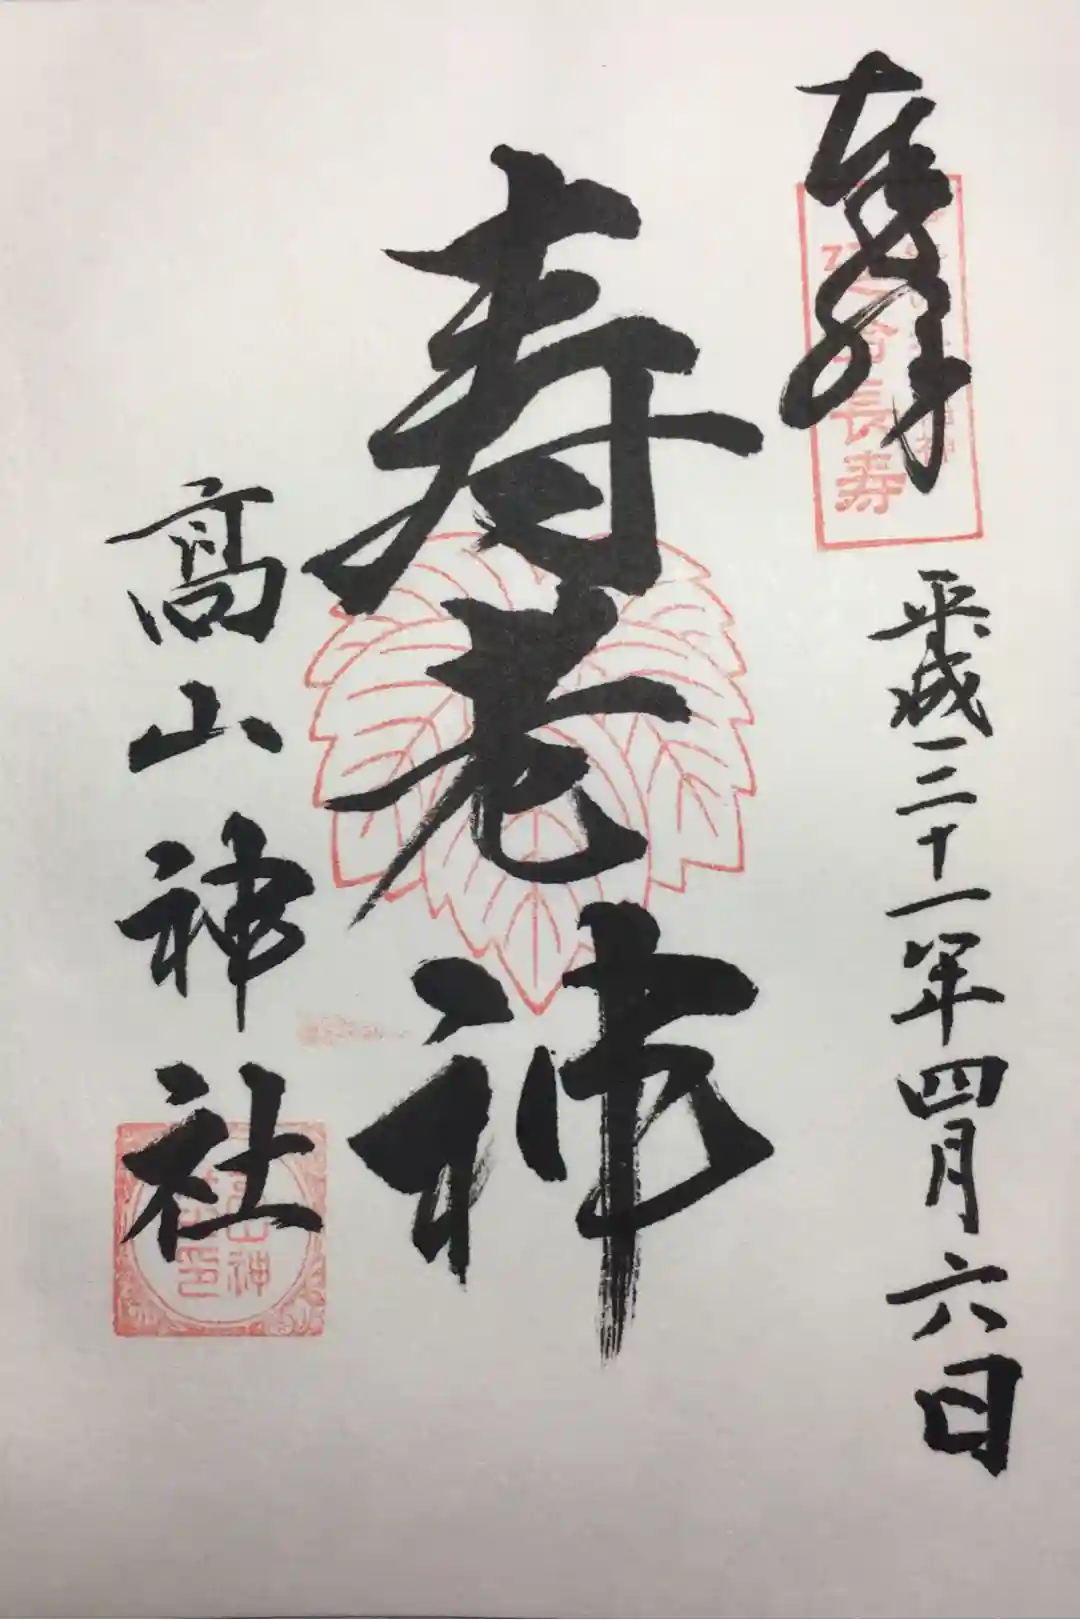 奉拝
延命長寿
平成三十一年四月六日
寿老神
高山神社